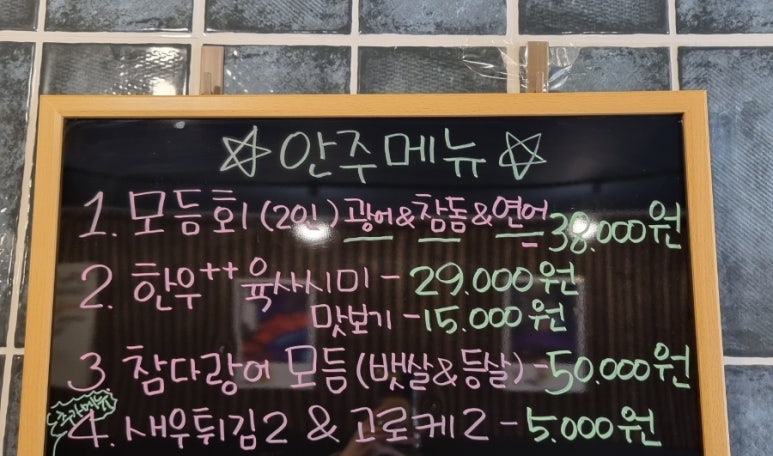 ☆안주메뉴☆
1. 모듬회(2인) 광어&참돔&연어 38.000원
2. 한우++육사시미 - 29.000원
맛보기 - 15.000원
3. 참다랑어 모듬(뱃살&등살) - 50.000원
추가메뉴
4. 새우튀김2 & 고로케2 - 5.000원